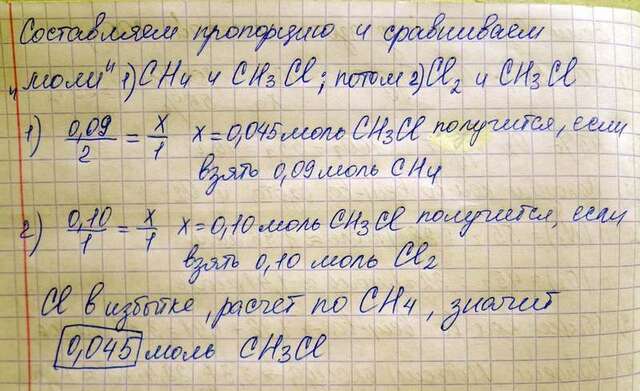 Составляем пропорцию и сравниваем
"моли" 1) CH4 и CH3Cl; потом 2) Cl2 и CH3Cl
1) 0,09/2 = x/1 x = 0,045 моль CH3Cl получится, если
взять 0,09 моль CH4
2) 0,10/1 = x/1 x = 0,10 моль CH3Cl получится, если
взять 0,10 моль Cl2
Cl в избытке, расчет по CH4, значит
0,045 моль CH3Cl